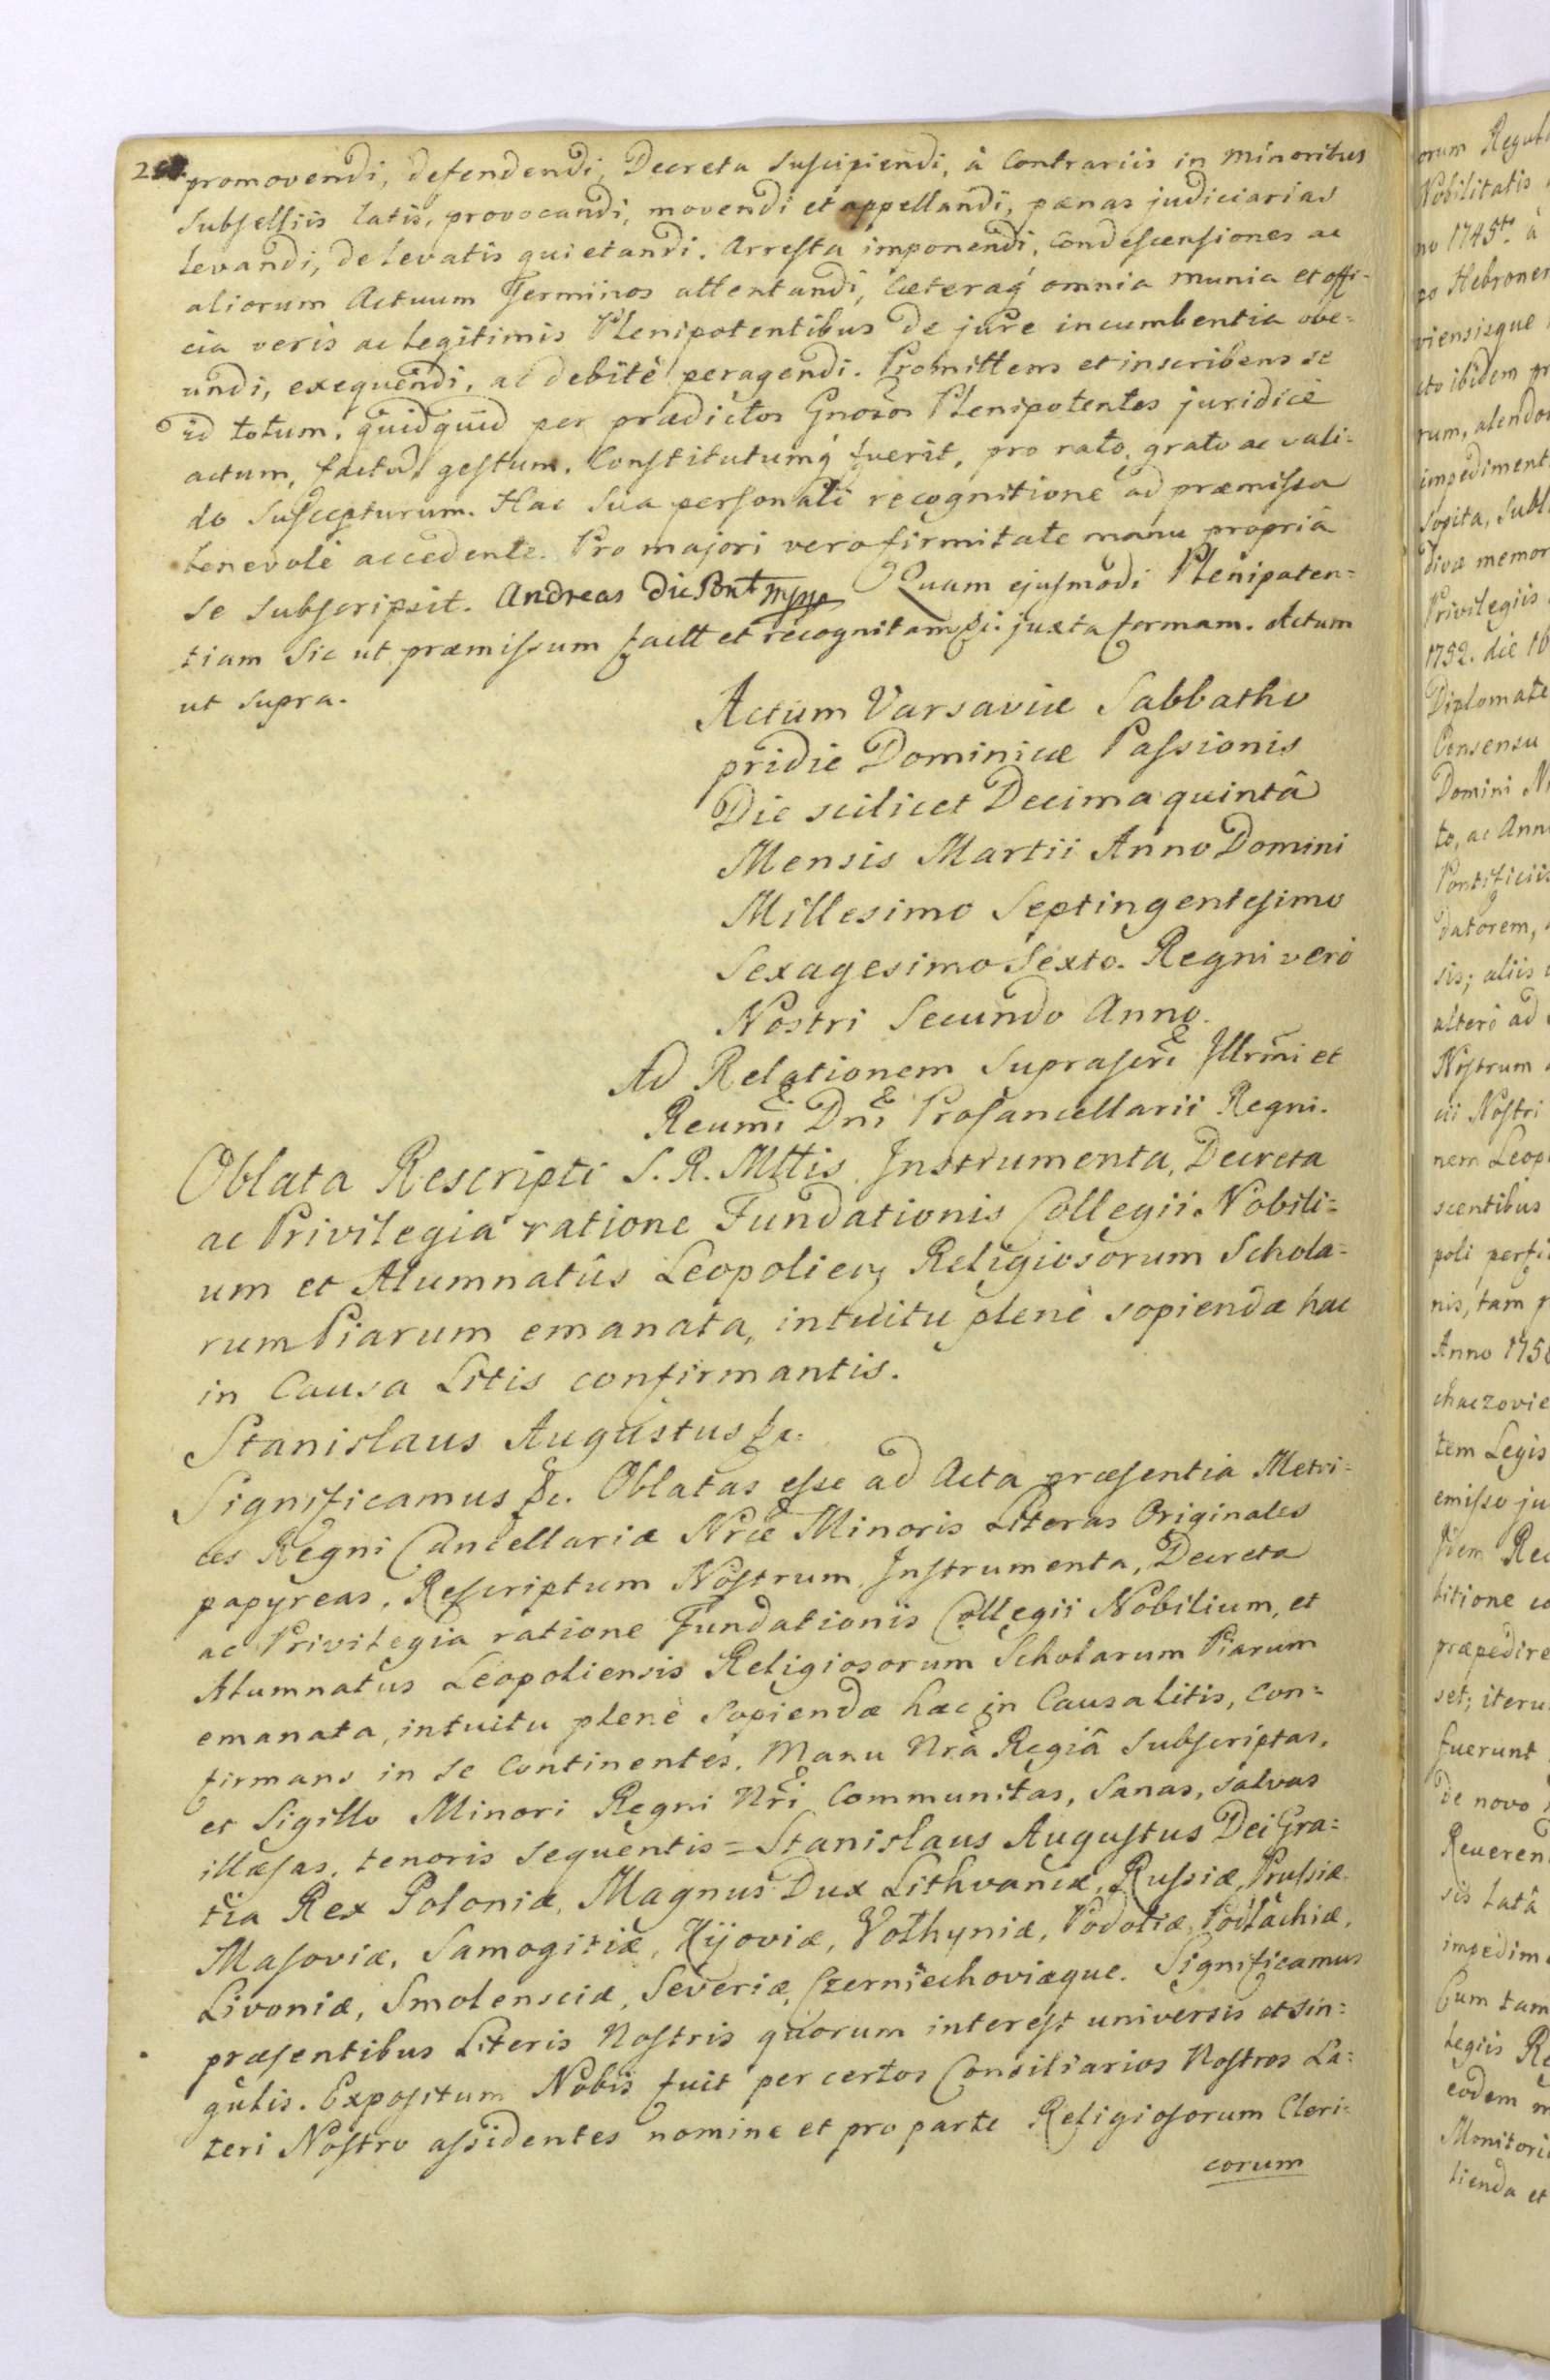 promovendi, defendendi, Decreta suscipiendi, à Contrariis in Minoribus
Subselliis latis, provocandi, movendi et appellandi, pænas judiciarias
levandi, de levatis quietandi. Arresta imponendi, Condescensiones ac
aliorum Actuum Terminos attentandi, Cæteraq́ omnia munia et offi-
cia veris ac legitimis Plenipotentibus de jure incumbentia obe=
undi, exequendi, ac debitè peragendi. Promittens et inscribens se
id totum, quidquid per prædictos Gnosos Plenipotentes juridicè
actum, factũ, gestum, Constitutumq́ fuerit, pro rato, grato ac vali=
do Suscepturum. Hac Sua personali recognitione ad præmissa
benevolè accedente. Pro majori vero firmitate manu propriâ
se subscripsit. Andreas du Pont mppa Quam ejusmodi Plenipoten=
tiam Sic ut præmissum factt et recognitam &c: juxta formam. Actum
ut supra.
Actum Varsaviæ Sabbatho
pridie Dominicæ Passionis
Die scilicet Decima quintâ
Mensis Martii Anno Domini
Millesimo Septingentesimo
Sexagesimo Sexto. Regni verò
Nostri Secundo Anno.
Ad Relationem suprascri Illrmi et
Reumi Dni Procancellarii Regni.
Oblata Rescripti S. R. Mttis Instrumenta, Decreta
ac Privilegia ratione Fundationis Collegii Nobili=
um et Alumnatûs Leopolien Religiosorum Schola=
rum Piarum emanata, intuitu plenè sopiendæ hac
in Causa Litis confirmantis.
Stanislaus Augustus &c.
Significamus &c. Oblatas esse ad Acta præsentia Metri=
ces Regni Cancellariæ Nræ Minoris Literas Originales
papyreas, Rescriptum Nostrum, Instrumenta, Decreta
ac Privilegia ratione Fundationis Collegii Nobilium, et
Alumnatus Leopoliensis Religiosorum Scholarum Piarum
emanata, intuitu plenè sopiendæ hac in Causa litis, con=
firmans in se Continentes, Manu Nrâ Regiâ Subscriptas,
et Sigillo Minori Regni Nri Communitas, Sanas, salvas
illæsas, tenoris sequentis = Stanislaus Augustus Dei Gra=
tia Rex Poloniæ, Magnus Dux Lithvaniæ, Russiæ, Prussiæ
Masoviæ, Samogitiæ, Kijoviæ, Volhyniæ, Podoliæ, Podlachiæ,
Livoniæ, Smolensciæ, Severiæ, Czerniechoviæque. Significamus
præsentibus Literis Nostris quorum interest universis et sin=
gulis. Expositum Nobis fuit per certos Consiliarios Nostros La=
teri Nostro assidentes nomine et pro parte Religiosorum Cleri=
corum
orum Regul
Nobilitatis
no 1745to à
po Hebronen
viensisque
cto ibidem pr
rum, alendor
impediment
Sopita, Subl
divæ memor
Privilegiis
1752. die 10
Diplomate
Consensu
Domini N
to, ac Ann
Pontificiis
datorem,
sis; aliis
alterò ad
Nostrum
cii Nostri
nem Leop
scentibus
poli perfi
nis, tam p
Anno 175
chaczovie
tem Legis
emisso ju
Rec
titione co
præpedire
set; iteru
fuerunt
de novo
Reveren
sis latâ
impedim
Cum tam
legiis Re
eodem m
Monitori
lienda et